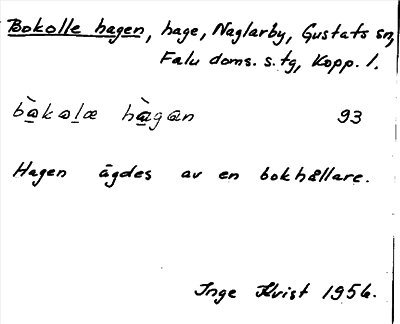 Bokolle hagen, hage, Naglarby, Gustafs sn,
Falu doms. s. tg, Kopp. l.
bọ̀kɷlæ hạ̀gɷn 93
Hagen ägdes av en bokhållare.
Inge Kvist 1956.